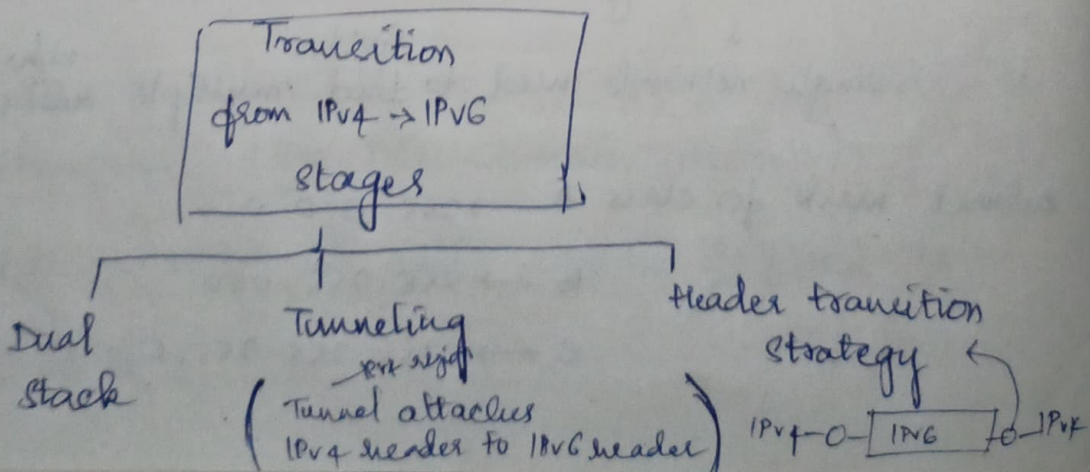 Transition
from IPv4 → IPv6
stages
Dual
Stack
Tunneling
Tunnel attaches
IPv4 header to IPv6 header
Header transition
Strategy
IPv4 IPv6 IPv4